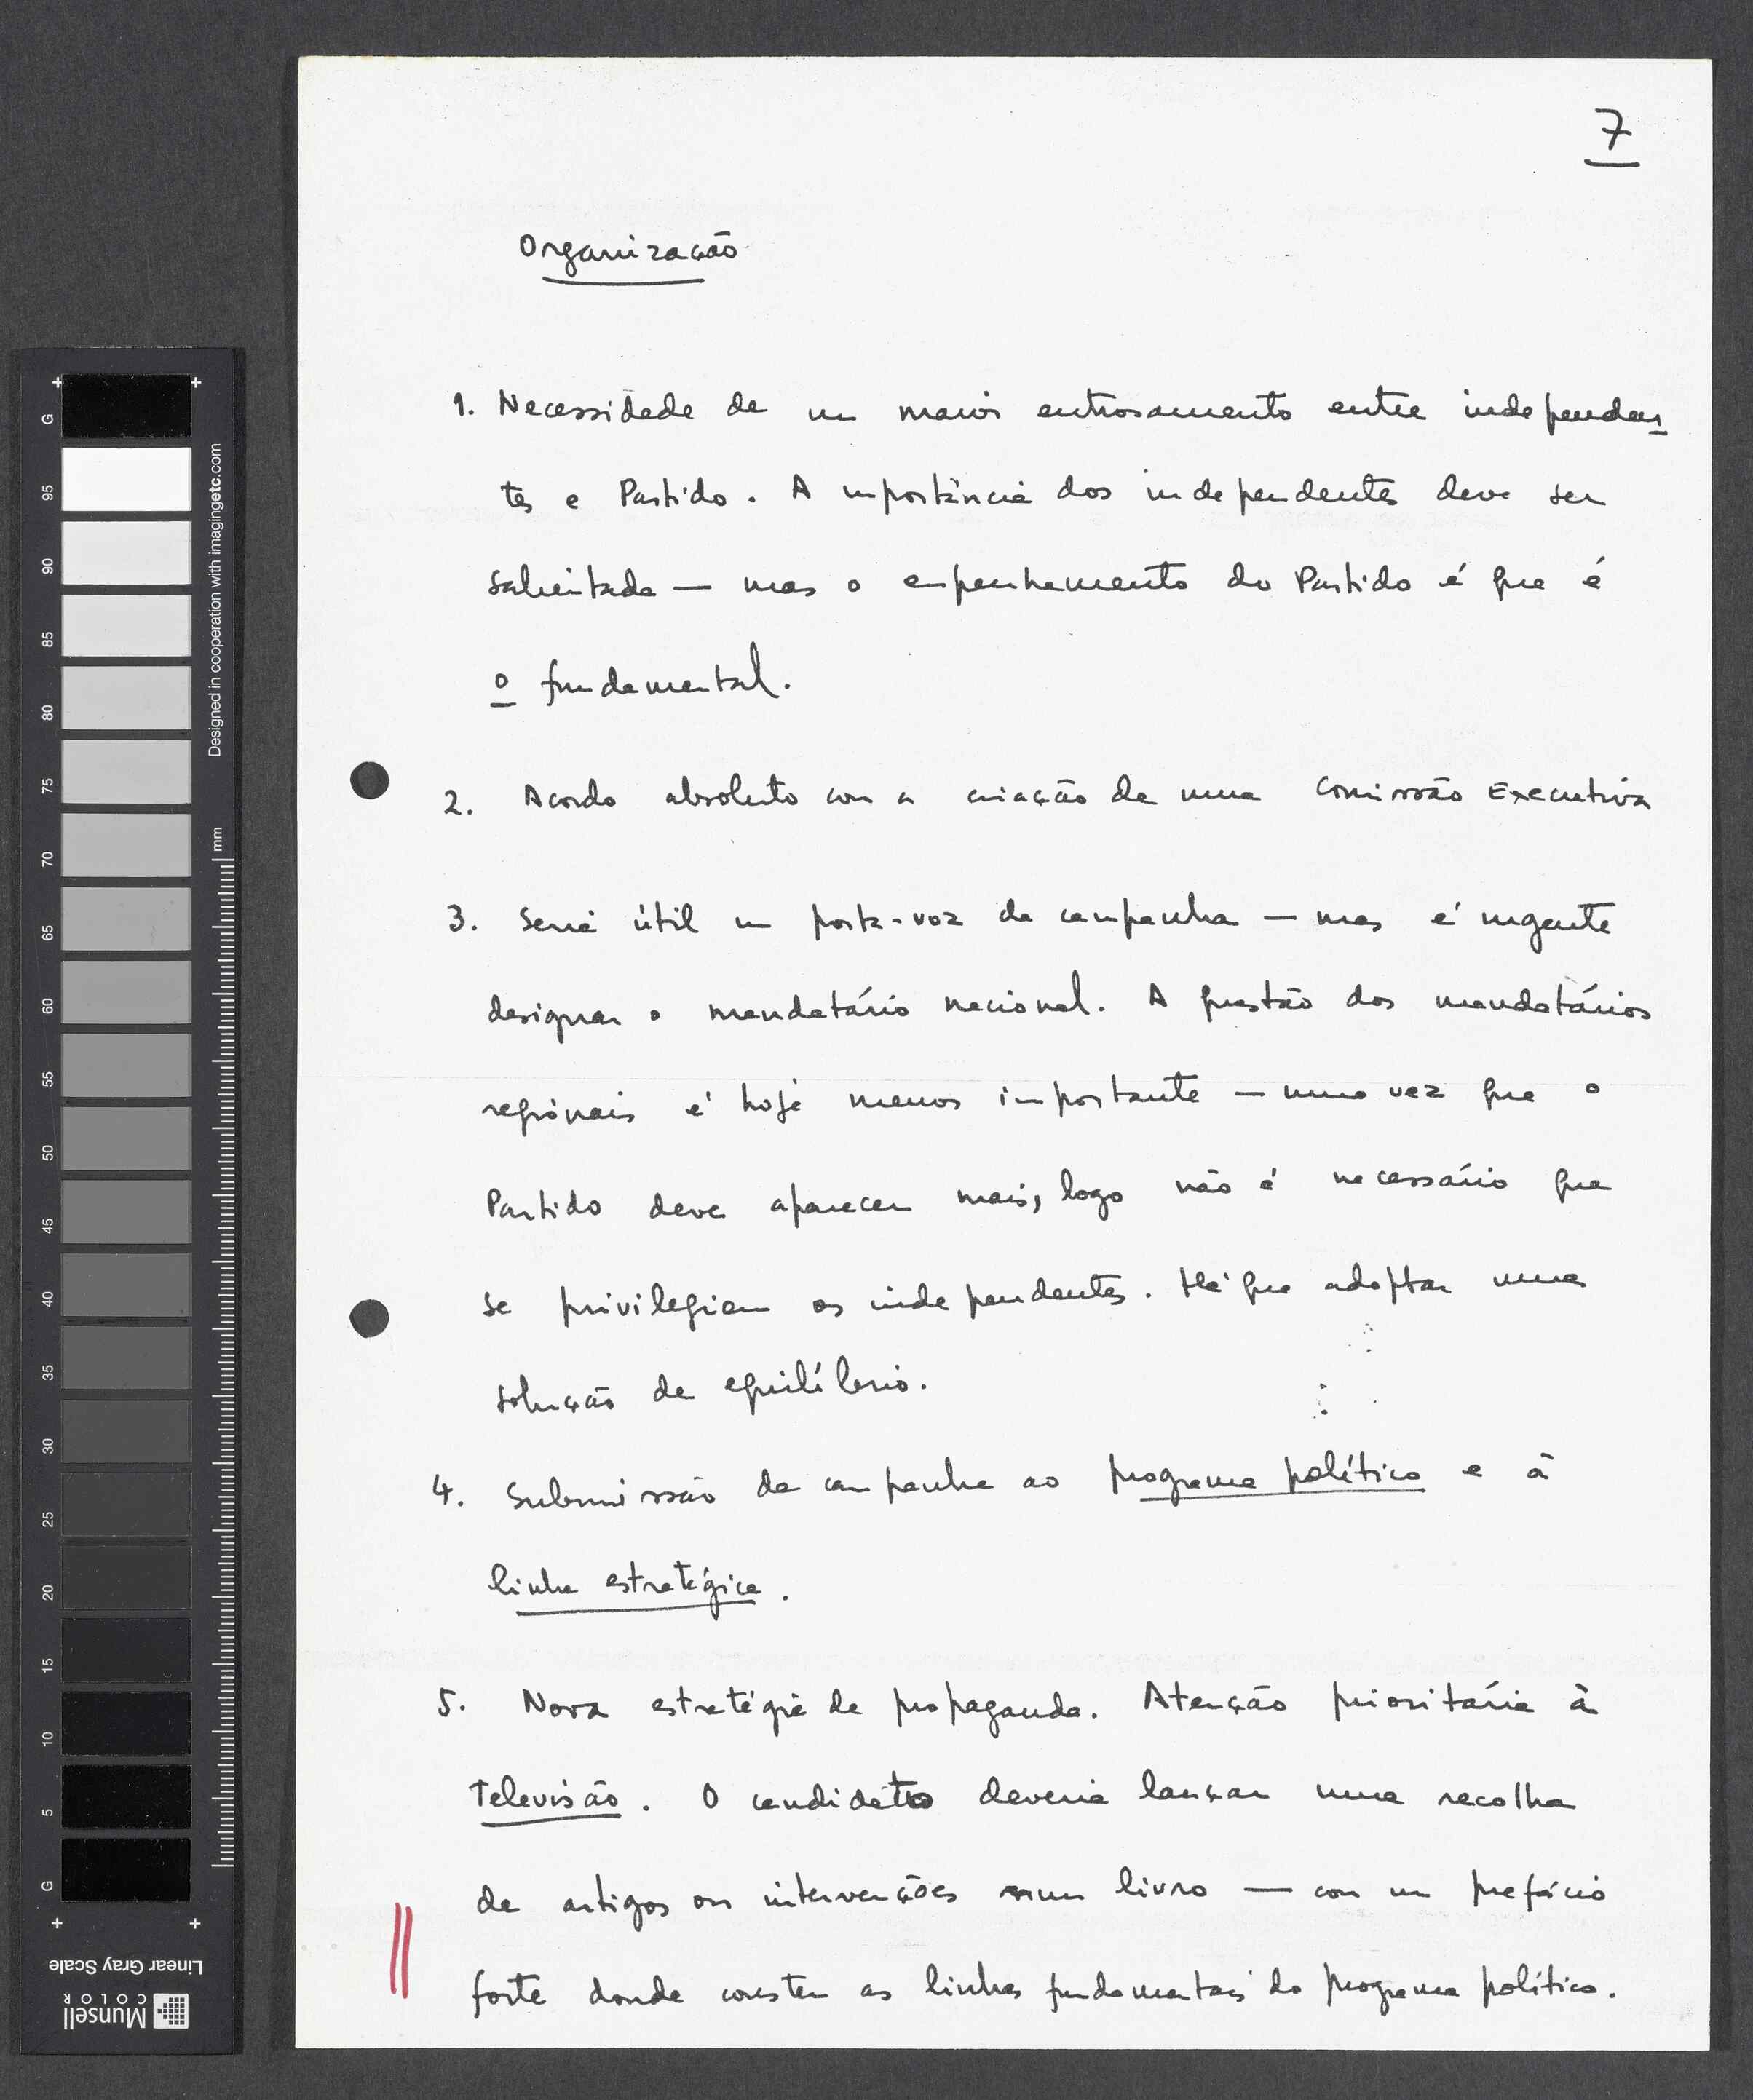 7
Organização
1. Necessidade de um maior entrosamento entre independen-
tes e Partido. A importância dos independentes deve ser
salientada — mas o empenhamento do Partido é que é
o fundamental.
2. Acordo absoluto com a criação de uma Comissão Executiva
3. Seria útil um porta-voz da campanha — mas é urgente
designar o mandatário nacional. A questão dos mandatários
regionais é hoje menos importante — uma vez que o
Partido deve aparecer mais, logo não é necessário que
se privilegiem os independentes. Há que adoptar uma
solução de equilíbrio.
4. Submissão da campanha ao programa político e à
linha estratégica.
5. Nova estratégia de propaganda. Atenção prioritária à
Televisão. O candidato deveria lançar uma recolha
de artigos ou intervenções num livro — com um prefácio
forte donde constem as linhas fundamentais do programa político.
G
95
90
85
80
75
70
65
60
55
50
45
40
35
30
25
20
15
10
5
G
Designed in cooperation with imagingetc.com
mm
Linear Gray Scale
Munsell
COLOR